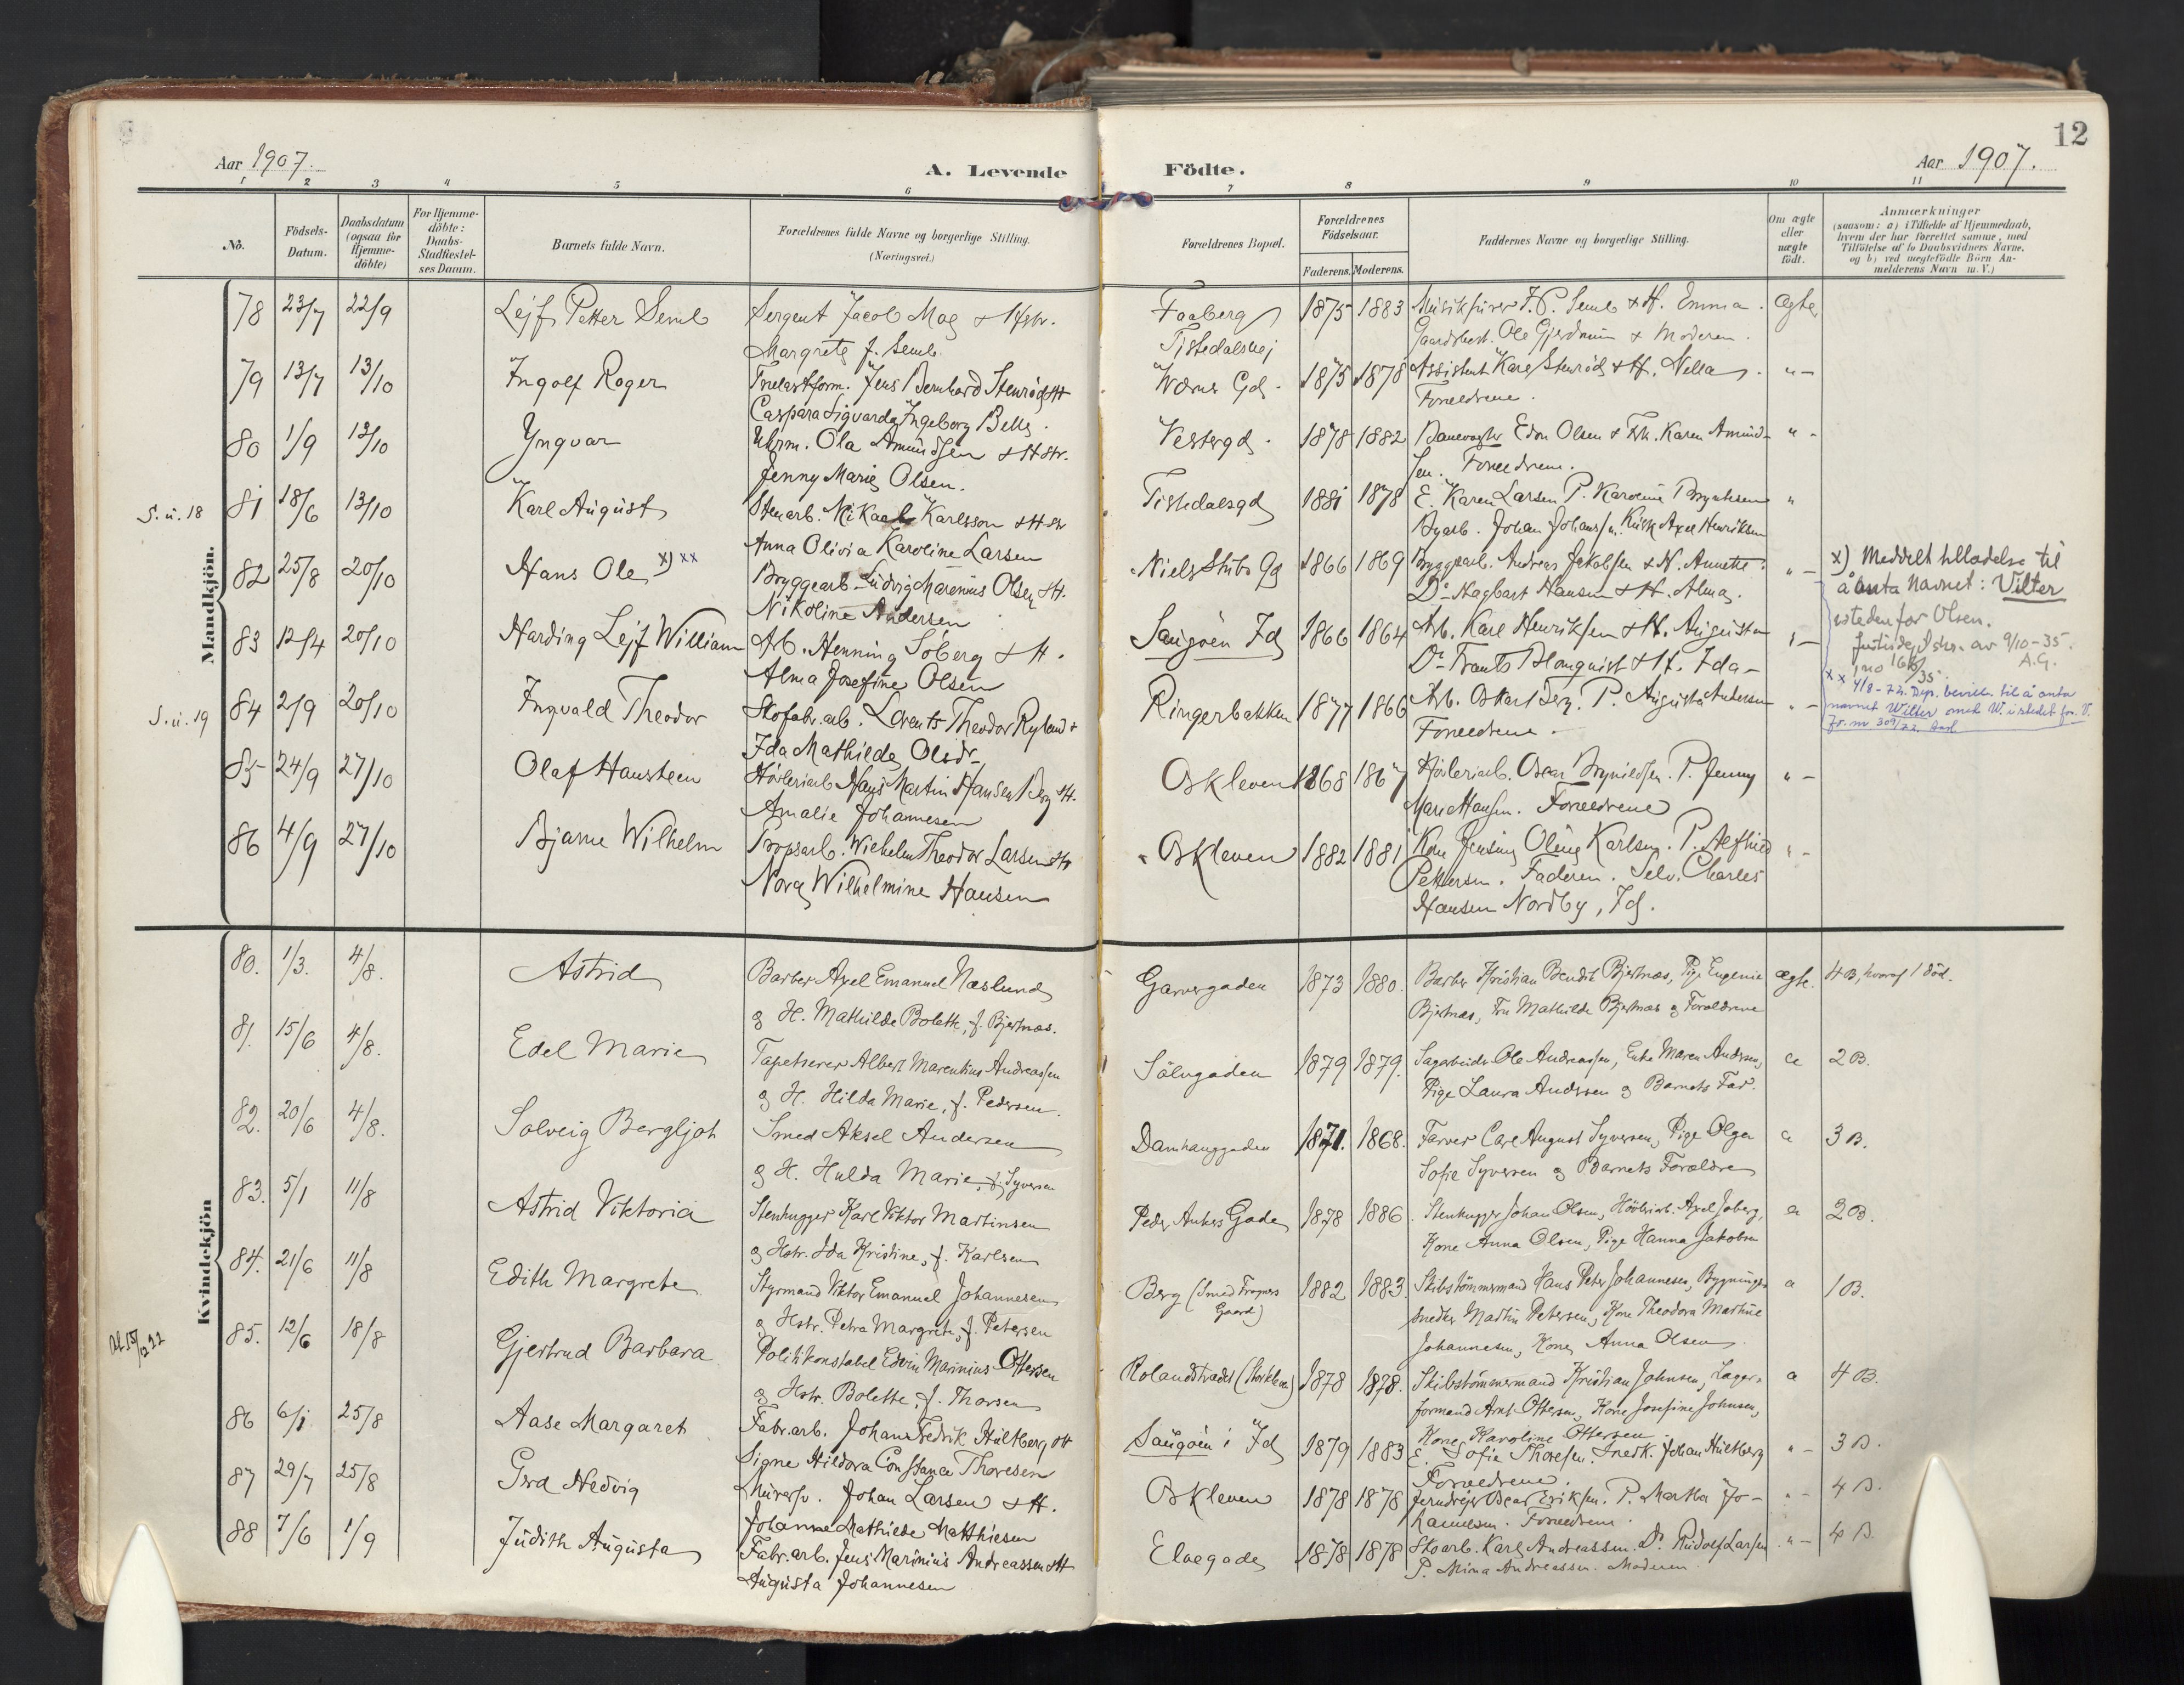 12
Aar 1907.
A. Levende
Födte.
Aar 1907.
1 2 3 4 5 6 7 8 9 10 11
No.
Födsels-Datum.
Daabsdatum (ogsaa for Hjemme-döbte)
For Hjemme-döbte: Daabs-Stadfæstel-ses Datum.
Barnets fulde Navn.
Forældrenes fulde Navne og borgerlige Stilling. (Næringsvei.)
Forældrenes Bopæl.
Forældrenes Födselsaar.
Faderens. Moderens.
Faddernes Navne og borgerlige Stilling.
Om ægte eller uægte födt.
Anmærkninger
(saasom: a) i Tilfælde af Hjemmedaab, hvem der har forrettet samme, med Tilföielse af to Daabsvidners Navne, og b) ved uægtefödte Börn An-melderens Navn m. V.)
Mandkjön.
78 23/7 22/9 Lejf Petter Semb Sergent Jacob Moe & Hstr. Faaberg 1875 1883 Musikfürer J. P. Semb & H. Emma. Ægte
Margrete f. Semb. Tistedalsvej Gaardbest. Ole Gjerdrum & Moderen.
79 13/7 13/10 Ingolf Roger Trælastform. Jens Bernhard Stenröd & H Wærns Gd. 1875 1878 Assistent Karl Stenröd & H. Nella. " -
Caspara Sigvarda Ingeborg Forældrene.
80 1/9 13/10 Yngvar Uhrm. Ola Amundsen & Hstr. Vestergd. 1878 1882 Banevogter Edv. Olsen & Frk. Karen Amund- " -
Jenny Marie Olsen. sen. Forældrene.
S. u. 18 81 18/6 13/10 Karl August Stenarb. Mikael Karlsson & Hstr Tistedalsgd 1881 1878 E. Karen Larsen P. Karoline Bryntesen "
Anna Olivia Karoline Larsen Byarb. Johan Johans/n. Kusk Axel Henriksen
82 25/8 20/10 Hans Ole x) xx Bryggearb. Ludvig Marenius Olsen & H. Niels Stubs Gd 1866 1869 Bryggearb. Andreas Jakobsen & H. Annette. " -
Nikoline Andersen Do Hagbart Hansen & H. Alma.
x) Meddelt tilladelse til
å anta navnet: Vilter
istedenfor Olsen.
Justisdep. skr. av 9/10-35.
A.G.
xx 4/8-72. Dep. bevilln. til å anta
navnet Wilter med W. istedet for V.
Jr. nr 309/72.
83 12/4 20/10 Harding Lejf William Arb. Henning Söberg & H. Saugöen Id 1866 1864 Arb. Karl Henriksen & H. Augusta " -
Alma Josefine Olsen Do Frants Blomquist & H. Ida -
S. u. 19 84 2/9 20/10 Ingvald Theodor Skofabr. arb. Lorents Theodor Ryland & Ringerbakken 1877 1866 Arb. Oskar Berg. P. Augusta Andersen " -
Ida Mathilde Olsdr. Forældrene.
85 24/9 27/10 Olaf Hausteen Hövleriarb. Hans Martin Hansen Berg & H. Oskleven 1868 1867 Hövleriarb. Oscar Brynildsen. P. Jenny " -
Amalie Johannesen Marie Hansen. Forældrene
86 4/9 27/10 Bjarne Wilhelm Propsarb. Wilhelm Theodor Larsen & H Oskleven 1882 1881 Kone Jensine Oline Karlsen. P. Alfhild " -
Nora Wilhelmine Hansen Pettersen. Faderen. Selv. Charles
Hansen Nordby, Id.
Kvindekjön
80. 1/3. 4/8. Astrid Barber Axel Emanuel Naslund Garvergaden 1873 1880. Barber Kristian Bendik Bjertnæs, Pige Eugenie ægte. 4 B, hvoraf 1 död.
og H. Mathilde Bolette, f. Bjertnæs. Bjertnæs, Fru Mathilde Bjertnæs og Forældrene
81. 15/6 4/8. Edel Marie Tapetserer Albert Marentius Andreassen Sölvgaden 1879 1879. Sagarbeider Ole Andreassen, Enke Maren Andersen, a 2 B.
og H. Hilda Marie, f. Pedersen. Pige Laura Andersen og Barnets Far.
82. 20/6 4/8. Solveig Bergljot Smed Aksel Andersen Damhauggaden 1871. 1868. Farver Carl August Syversen, Pige Olga a 3 B.
og H. Hulda Marie, f. Syversen Sofie Syversen og Barnets Forældre
83. 5/1 11/8 Astrid Viktoria Stenhugger Karl Viktor Martinsen Peder Ankers Gade 1878 1886. Stenhugger Johan Olsen, Hövleriarb. Axel Joberg, a 2 B.
og Hstr. Ida Kristine, f. Karlsen Kone Anna Olsen, Pige Hanna Jakobsen
84. 21/6 11/8 Edith Margrete Styrmand Viktor Emanuel Johannesen Berg (Smed Fragners Gaard) 1882 1883. Skibstömmermand Hans Peter Johannesen, Bygnings- a 1 B.
og Hstr. Petra Margrete, f. Petersen snedker Martin Petersen, Kone Theodora Martine
Johannesen, Kone Anna Olsen
85. 12/6 18/8 Gjertrud Barbara Politikonstabel Edvin Marinius Ottersen Rolandstrædet 1878 1878. Skibstömmermand Kristian Johnsen, Lager- a 4 B.
og Hstr. Bolette, f. Thorsen formand Arnt Ottersen, Kone Josefine Johnsen,
Kone Karoline Ottersen
86 6/1 25/8 Aase Margaret Fabr.arb. Johan Fredrik Hultberg & H Saugöen i Id 1879 1883 E. Sofie Thoresen. Snedk. Johan Hultberg " - 3 B.
Signe Hildora Constance Thoresen Forældrene.
87 29/7 25/8 Gerd Hedvig Murersv. Johan Larsen & H. Oskleven 1878 1878 Jerndrejer Oscar Eriksen. P. Martha Jo- " - 4 B.
Johanne Mathilde Matthiesen hannesen. Forældrene.
88 7/6 1/9 Judith Augusta Fabr. arb. Jens Marinius Andreassen & H Elvegade 1878 1878 Skoarb. Karl Andreassen. Do Rudolf Larsen " - 4 B.
Augusta Johannesen P. Mina Andreassen. Moderen